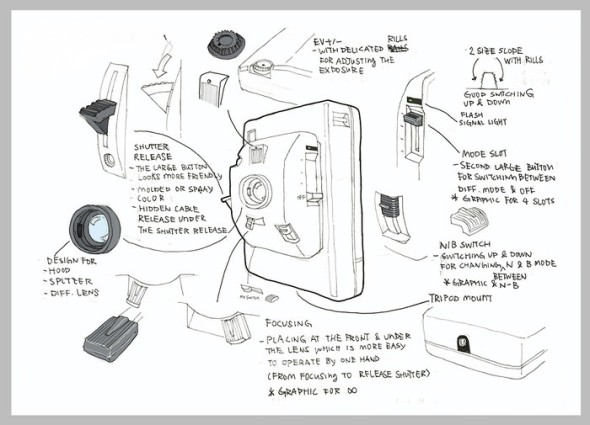 EV+/-
- WITH DELICATED RILLS
FOR ADJUSTING THE
EXPOSURE
2 SIZE SLOPE
WITH RILLS
GOOD SWITCHING
UP & DOWN
FLASH
SIGNAL LIGHT
MODE SLOT
- SECOND LARGE BUTTON
FOR SWITCHING BETWEEN
DIFF. MODE & OFF
* GRAPHIC FOR 4 SLOTS
SHUTTER
RELEASE
- THE LARGE BUTTON
LOOKS MORE FRIENDLY
- MOLDED OR SPRAY
COLOR
- HIDDEN CABLE
RELEASE UNDER
THE SHUTTER RELEASE
OFF
DESIGN FOR
- HOOD
- SPLTZER
- DIFF. LENS
N/B SWITCH
- SWITCHING UP & DOWN
FOR CHANGING N & B MODE
BETWEEN
* GRAPHIC & N-B
TRIPOD MOUNT
FOCUSING
- PLACING AT THE FRONT & UNDER
THE LENS WHICH IS MORE EASY
TO OPERATE BY ONE HAND
(FROM FOCUSING TO RELEASE SHUTTER)
* GRAPHIC FOR ∞